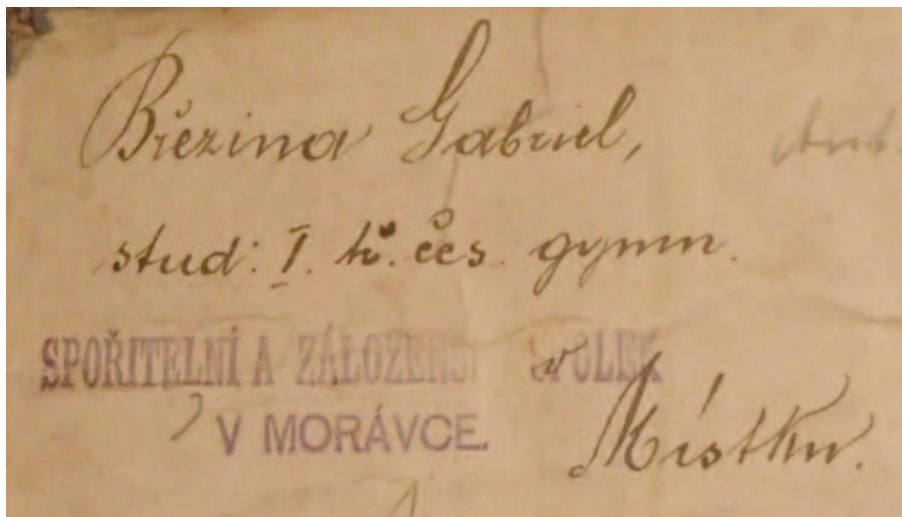 Březina Gabriel,
stud: I. tř. čes. gymn.
SPOŘITELNÍ A ZÁLOŽENSKÝ SPOLEK
V MORÁVCE.
v Místku.